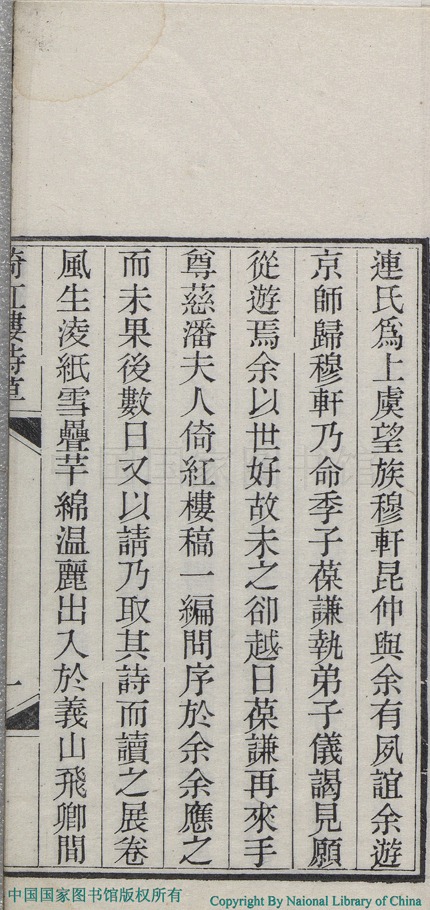 連氏爲上虞望族穆軒昆仲與余有夙誼余遊
京師歸穆軒乃命季子葆謙執弟子儀謁見願
從遊焉余以世好故未之卻越日葆謙再來手
尊慈潘夫人倚紅樓稿一編問序於余余應之
而未果後數日又以請乃取其詩而讀之展卷
風生淩紙雪疊芊綿温麗出入於義山飛卿間
倚紅樓詩草
一
中国国家图书馆版权所有
Copyright By Naional Library of China